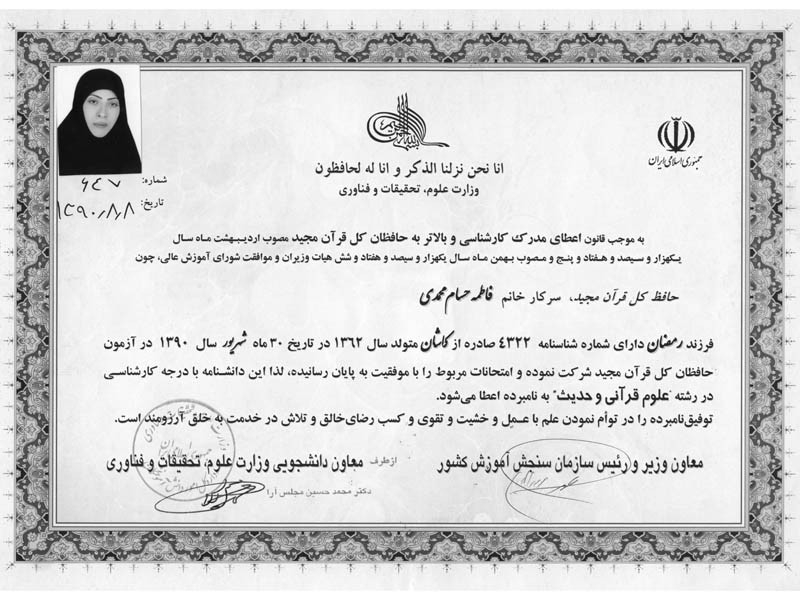 جمهوری اسلامی ایران
انا نحن نزلنا الذکر و انا له لحافظون
وزارت علوم، تحقیقات و فناوری
شماره: ۶۴۷
تاریخ: ۱۳۹۰/۸/۸
به موجب قانون اعطای مدرک کارشناسی و بالاتر به حافظان کل قرآن مجید مصوب اردیبهشت ماه سال
یکهزار و سیصد و هفتاد و پنج و مصوب بهمن ماه سال یکهزار و سیصد و هفتاد و شش هیات وزیران و موافقت شورای آموزش عالی، چون
حافظ کل قرآن مجید، سرکار خانم فاطمه حسام محمدی
فرزند رمضان دارای شماره شناسنامه ۴۳۲۲ صادره از کاشان متولد سال ۱۳۶۲ در تاریخ ۳۰ ماه شهریور سال ۱۳۹۰ در آزمون
حافظان کل قرآن مجید شرکت نموده و امتحانات مربوط را با موفقیت به پایان رسانیده، لذا این دانشنامه با درجه کارشناسی
در رشته "علوم قرآنی و حدیث" به نامبرده اعطا می‌شود.
توفیق نامبرده را در توأم نمودن علم با عمل و خشیت و تقوی و کسب رضای خالق و تلاش در خدمت به خلق آرزومند است.
معاون وزیر و رئیس سازمان سنجش آموزش کشور
از طرف معاون دانشجویی وزارت علوم، تحقیقات و فناوری
دکتر محمد حسین مجلس آرا